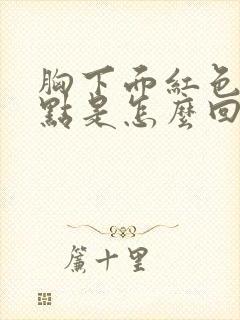 胸下面紅色
點是怎麼回
簾十里